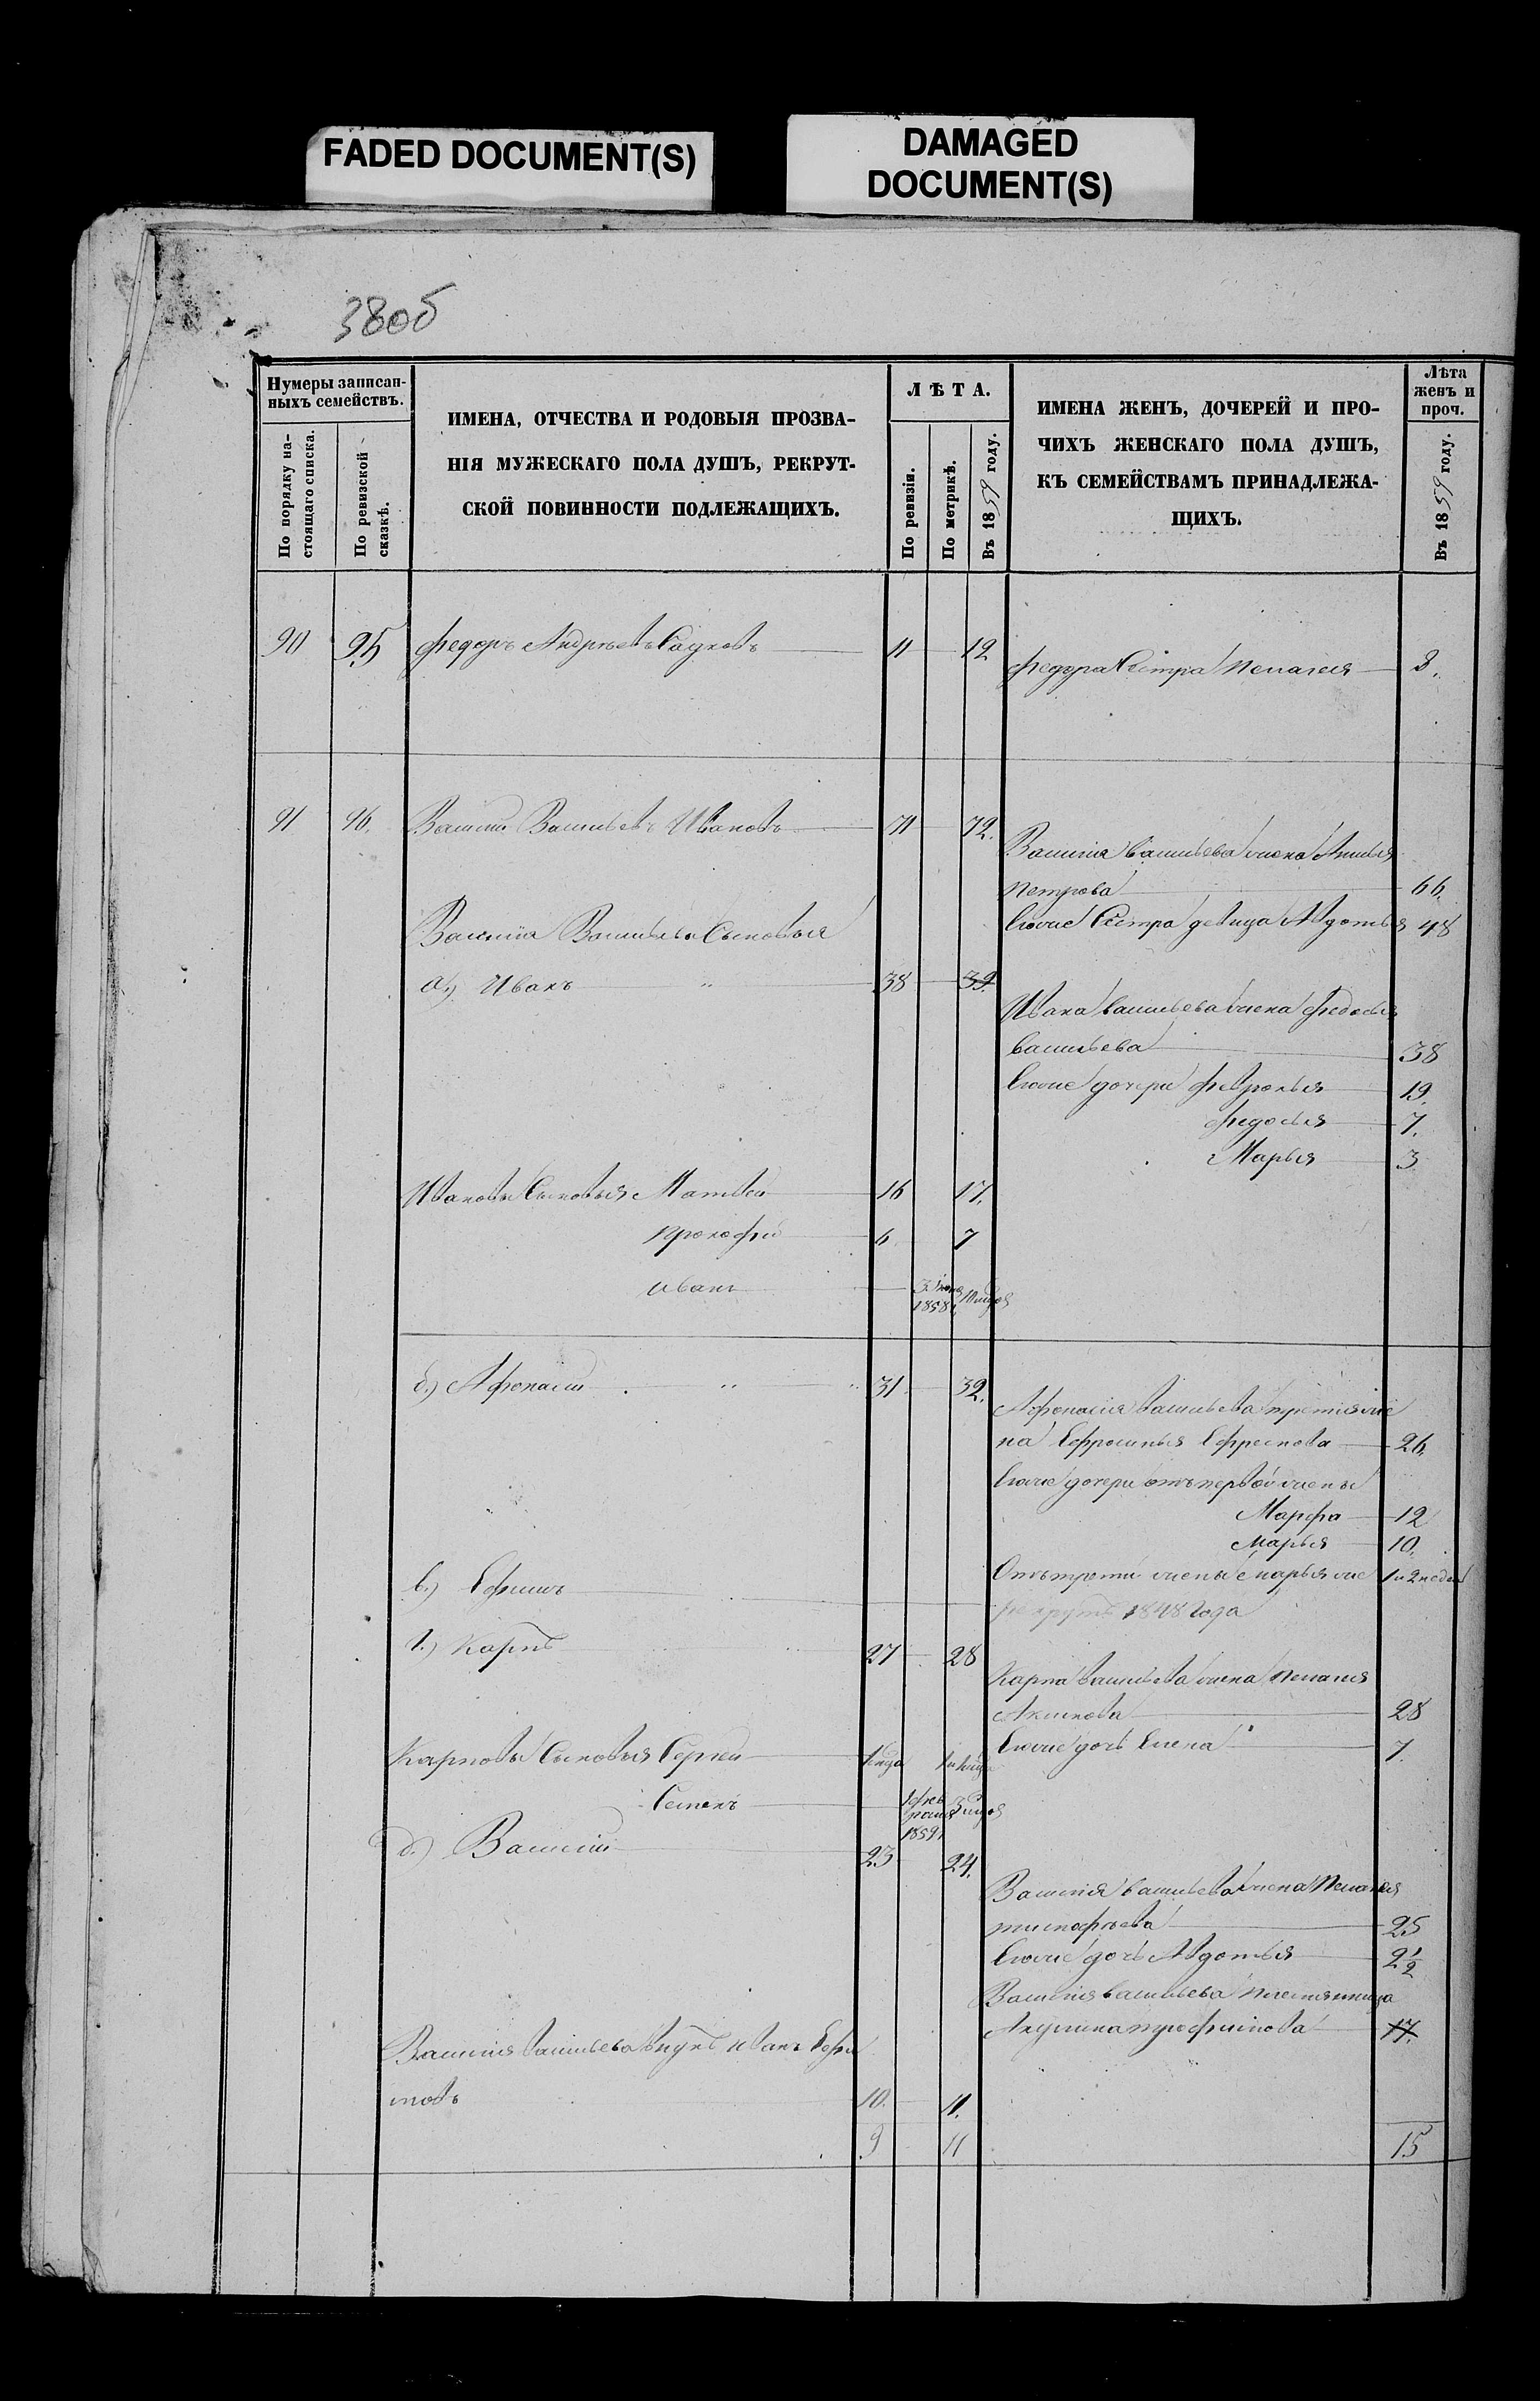 FADED DOCUMENT(S)
DAMAGED
DOCUMENT(S)
38об
Нумеры записан-
ныхъ семействъ.
По порядку на-
стоящаго списка.
По ревизской
сказкѣ.
ИМЕНА, ОТЧЕСТВА И РОДОВЫЯ ПРОЗВА-
НІЯ МУЖЕСКАГО ПОЛА ДУШЪ, РЕКРУТ-
СКОЙ ПОВИННОСТИ ПОДЛЕЖАЩИХЪ.
ЛѢТА.
По ревизіи.
По метрикѣ.
Въ 1859 году.
ИМЕНА ЖЕНЪ, ДОЧЕРЕЙ И ПРО-
ЧИХЪ ЖЕНСКАГО ПОЛА ДУШЪ,
КЪ СЕМЕЙСТВАМЪ ПРИНАДЛЕЖА-
ЩИХЪ.
Лѣта
женъ и
проч.
Въ 1859 году.
90 95 Федоръ Андреевъ Садковъ 11 12
Федора Сестра Пелагея 8.
91 96. Василий Васильевъ Ивановъ 71 72.
Василия Васильева жена
Петрова 66.
Василия Васильева Сыновья
Евоже Сестра девица Авдотья 48
а.) Иванъ " 38 39.
Ивана Васильева жена Федосья
Васильева 38
Евоже дочери Февронья 19.
Федосья 7.
Марья 3
Ивановы Сыновья Матвей 16 17.
Прокофий 6 7
Иванъ 3 июня 1858 10 мцов
б.) Афонасий " " 31 32.
Афонасия Васильева третия же
на Ефросинья Ефремова 26.
Евоже дочери отъ первой жены
Марфа 12
Марья 10.
Отъ третей жены Марья же 1 и 2 недел
в.) Ефимъ
рекрутъ 1848 года
г.) Карпъ 27 28
Карпа Васильева жена Пелагея
Акимова 28
Евоже дочь Елена 7.
Карповы Сыновья Сергей 1 года
Семенъ февраля 1859 3 мцов
д.) Василий 23 24.
Василия Васильева жена Пелагея
Тимофеева 25
Евоже дочь Авдотья 2 1/2
Василия Васильева племянница
Акулина Трофимова 17.
Василия Васильева внукъ Иванъ Ефи
мовъ 10. 11.
9 11 15